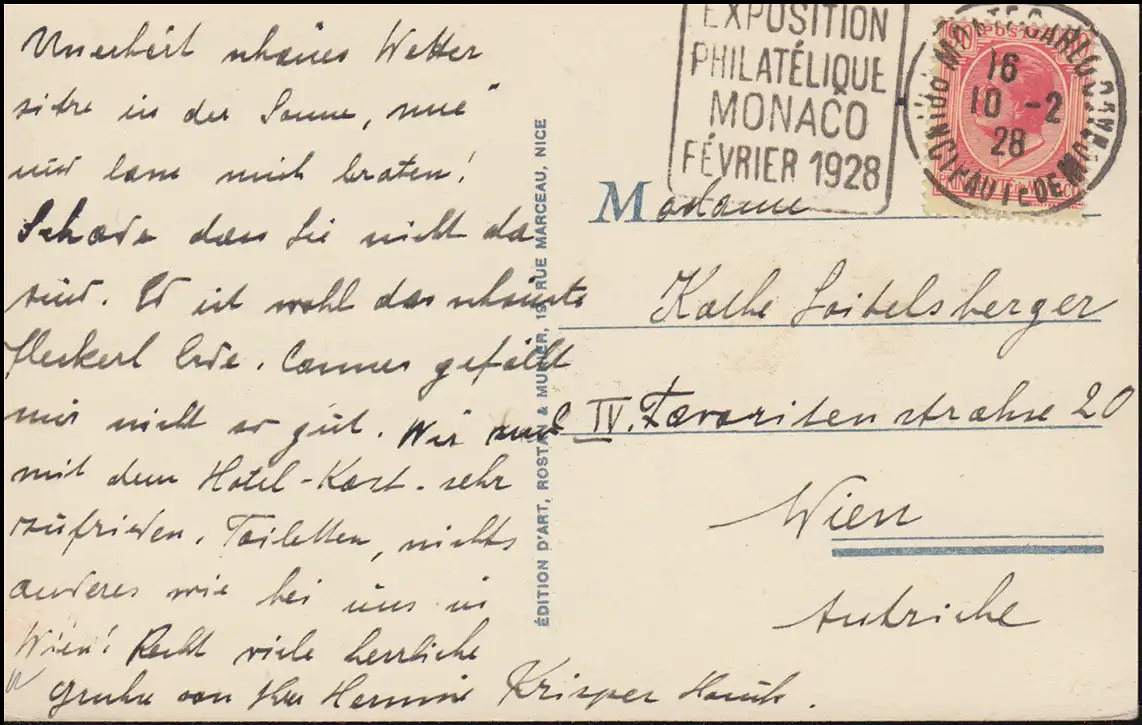 Unerhört schönes Wetter
sitze in der Sonne,
und lasse mich braten!
Schade dass Sie nicht da
sind. Es ist wohl das schönste
Fleckerl Erde. Cannes gefällt
mir nicht so gut. Wir sind
mit dem Hotel-Kost. sehr
zufrieden. Toiletten, nichts
anderes wie bei uns in
Wien! Recht viele herrliche
Grüße von Ihrer Hermine Krisper
ÉDITION D'ART, ROSTAN & MUNIER, 19, RUE MARCEAU, NICE
EXPOSITION
PHILATÉLIQUE
MONACO
FÉVRIER 1928
MONTE CARLO
PRINCIPAUTÉ DE MONACO
16
10 -2
28
POSTES
PRINCIPAUTÉ DE MONACO
Madame
Kathe Loitelsberger
IV. Favoritenstrahse 20
Wien
Autriche